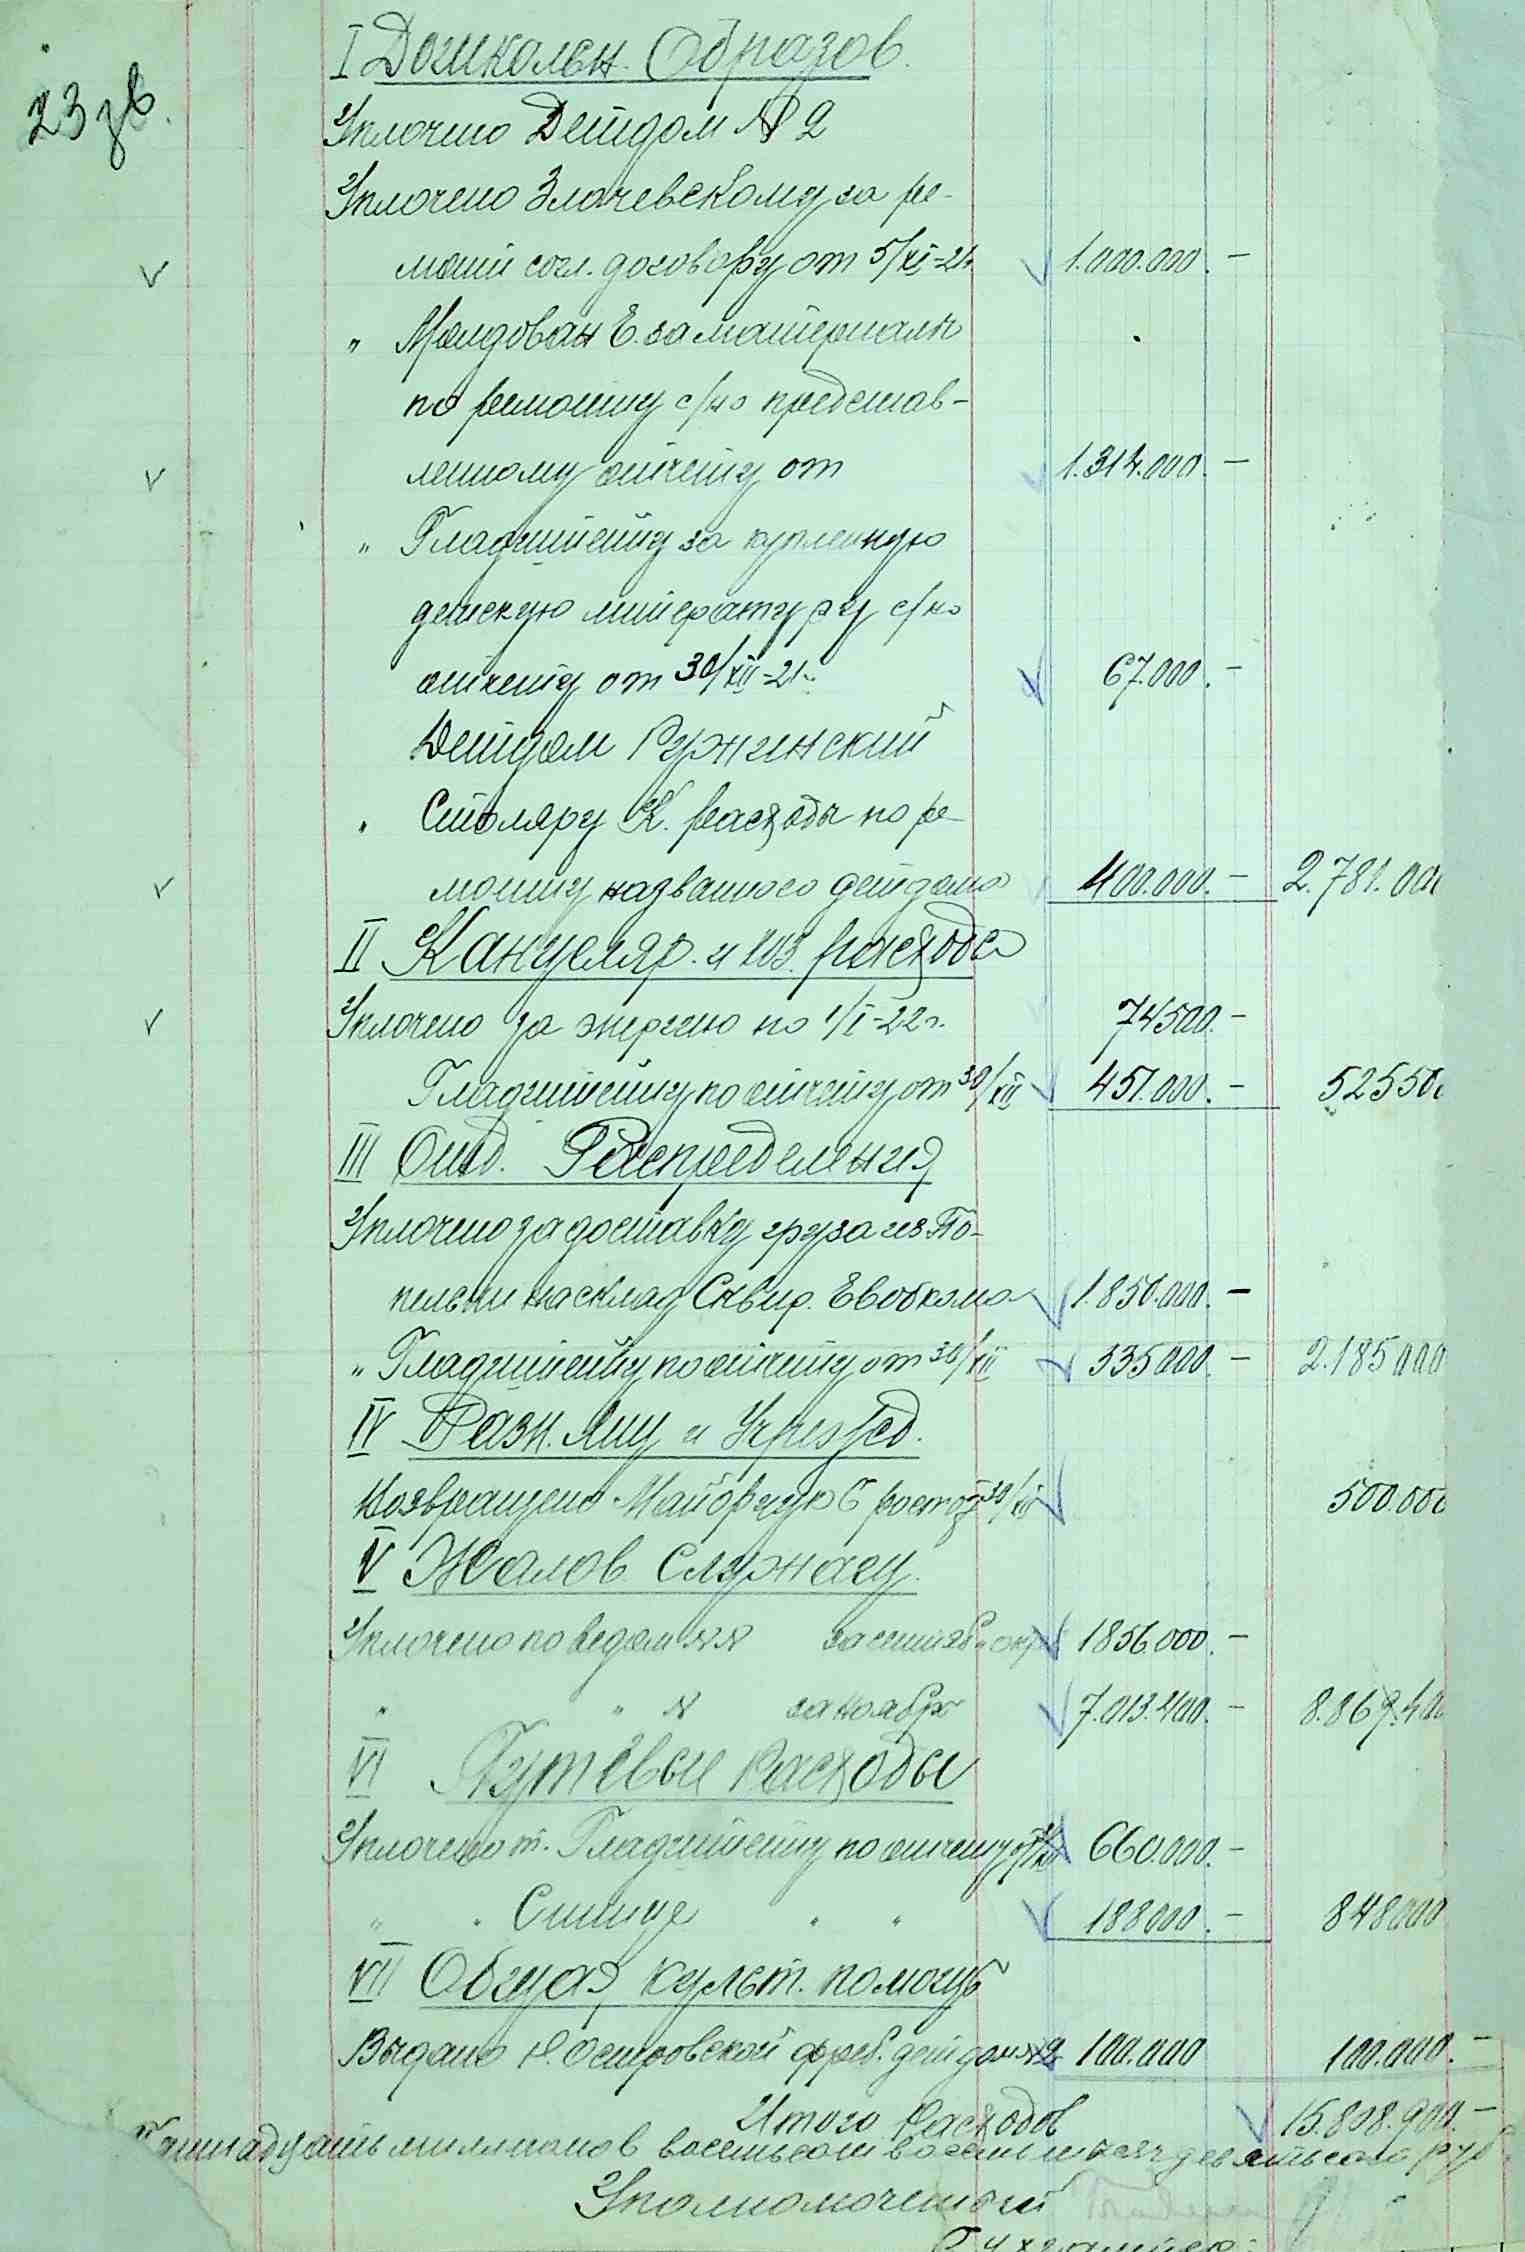 I Дошкольн. Образов.
23 зв.
Уплочено Детдом № 2
Уплочено Злочевскому за ре-
монт согл. договору от 5/XI-21г. 1.000.000.-
" Молдован Е. за материалы
по ремонту с/но представ-
ленному отчету от 1.314.000.-
" Гладштейну за купленную
детскую литературу с/но
отчету от 30/XII-21г. 67.000.-
Детдом Ружинский
" Столяру К. расходы по ре-
монту названного детдома 400.000.- 2.781.000
II Канцеляр. и хоз. расхода
Уплочено за энергию по 1/I-22г. 74500.-
Гладштейну по отчету от 30/XII 451.000.- 525500
III Отд. Распределения
Уплочено за доставку груза из По-
пельни на склад Сквир. Евобкома 1.850.000.-
" Гладштейну по отчету от 30/XII 335000.- 2.185000
IV Разн. Лиц и Учрежд.
Возвращено Майорчук Б 30/XII 500.000
V Жалов. Служащ.
Уплочено по ведом №№ за сентяб. и окт. 1856.000.-
" " № за ноябрь 7.013.400.- 8.869.400
VI Путевые Расходы
Уплочено т. Гладштейну по отчету 660.000.-
" " Спице " " 188000.- 848000
VII Общая культ. помощь
Выдано Н. Островской фреб. детдом №2 100.000 100.000.-
Итого Расходов 15.808.900.-
Пятнадцать миллионов восемьсот восемь тысяч девятьсот руб
Уполномоченный
Бухгалтер: